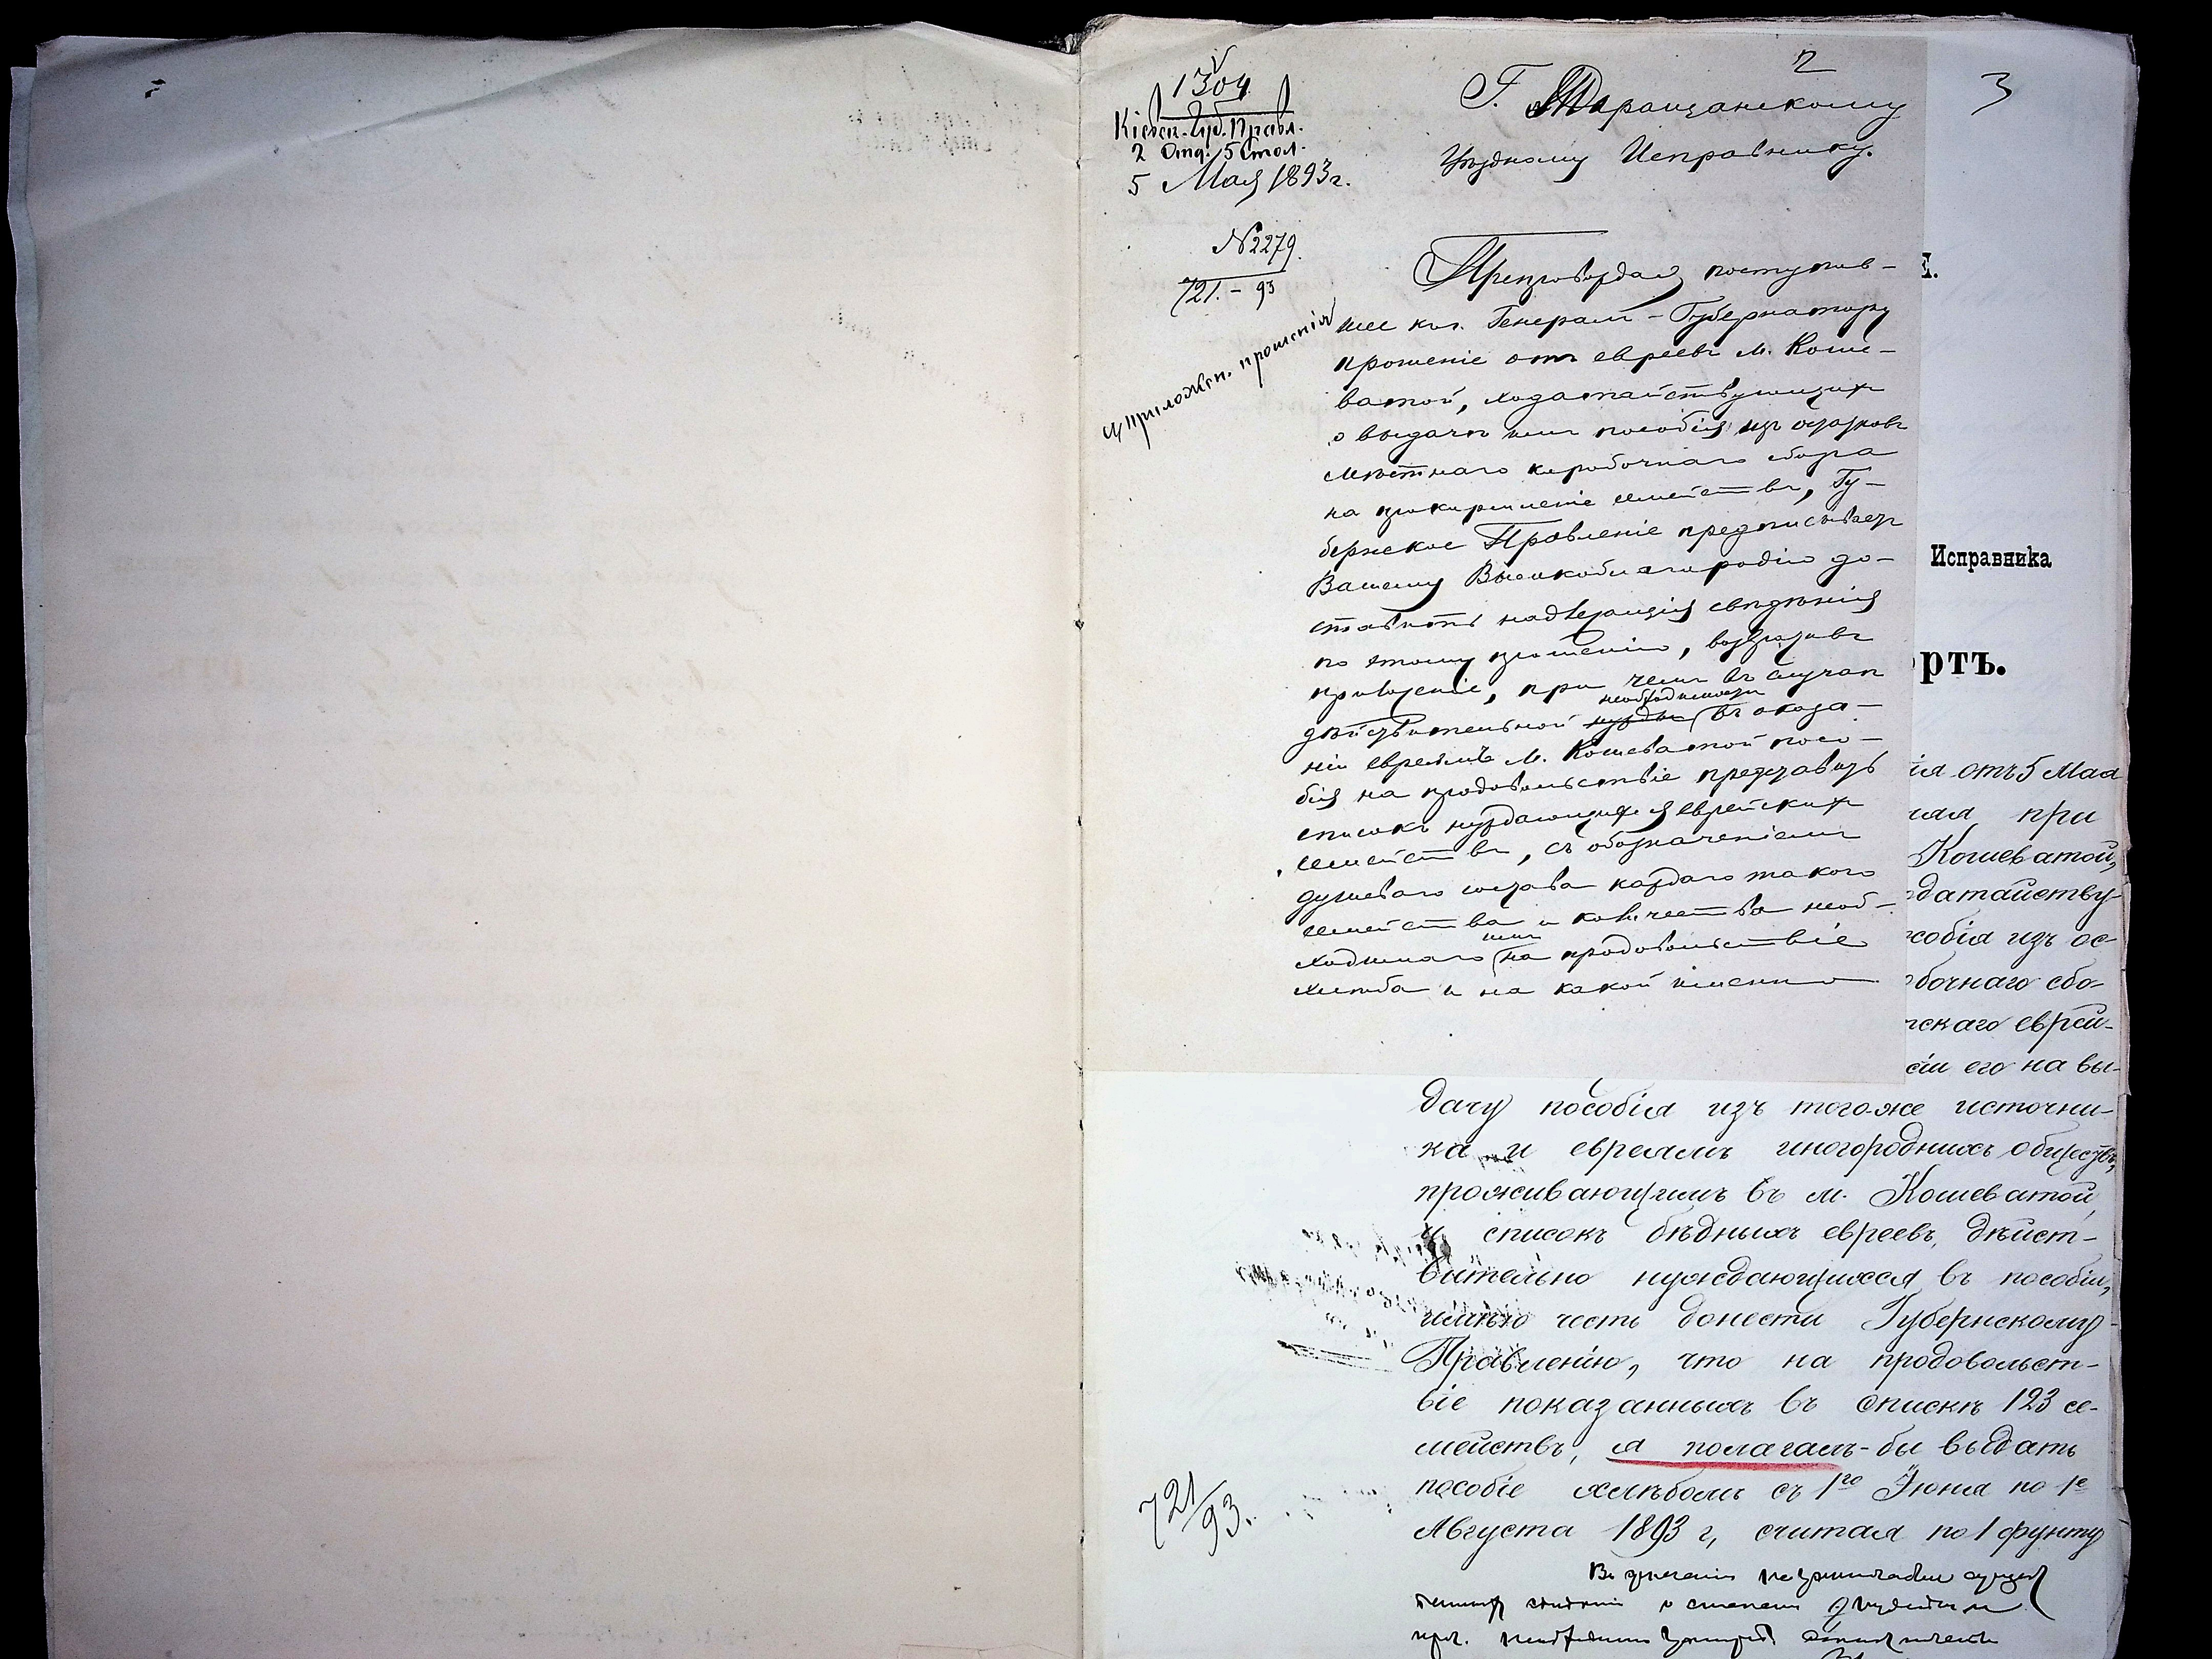 1304
Кіевск. Губ. Правл.
2 Отд. 5 Стол.
5 Мая 1893 г.
№ 2279.
721. - 93
съ приложен. прошенія
2
3
Г. Таращанскому
Уѣздному Исправнику.
Препровождая поступив-
шее къ г. Генералъ-Губернатору
прошеніе отъ евреевъ м. Коше-
ватой, ходатайствующихъ
о выдачѣ имъ пособія изъ остатковъ
мѣстнаго коробочнаго сбора
на прокормленіе семействъ, Гу-
бернское Правленіе предписываетъ
Вашему Высокоблагородію до-
ставить надлежащія свѣдѣнія
по этому прошенію, возвративъ
приложеніе, при чемъ въ случаѣ
необходимости
дѣйствительной нужды въ оказа-
ніи евреямъ м. Кошеватой посо-
бія на продовольствіе представить
списокъ нуждающихся еврейскихъ
семействъ, съ обозначеніемъ
душеваго состава каждаго такого
семейства и количества необ-
имъ
ходимаго на продовольствіе
хлѣба и на какой именно
и.
Исправника
ортъ.
ія отъ 5 Мая
чая при
Кошеватой,
одатайству-
особія изъ ос-
обочнаго сбо-
скаго еврей-
сіи его на вы-
дачу пособія изъ того-же источни-
ка и евреямъ иногороднихъ обществъ,
проживающимъ въ м. Кошеватой,
и списокъ бѣдныхъ евреевъ, дѣйст-
вительно нуждающихся въ пособіи,
имѣю честь донести Губернскому
Правленію, что на продовольст-
віе показанныхъ въ спискѣ 123 се-
мействъ, я полагалъ-бы выдать
пособіе хлѣбомъ съ 1го Іюня по 1е
Августа 1893 г, считая по 1 фунту
721/93.